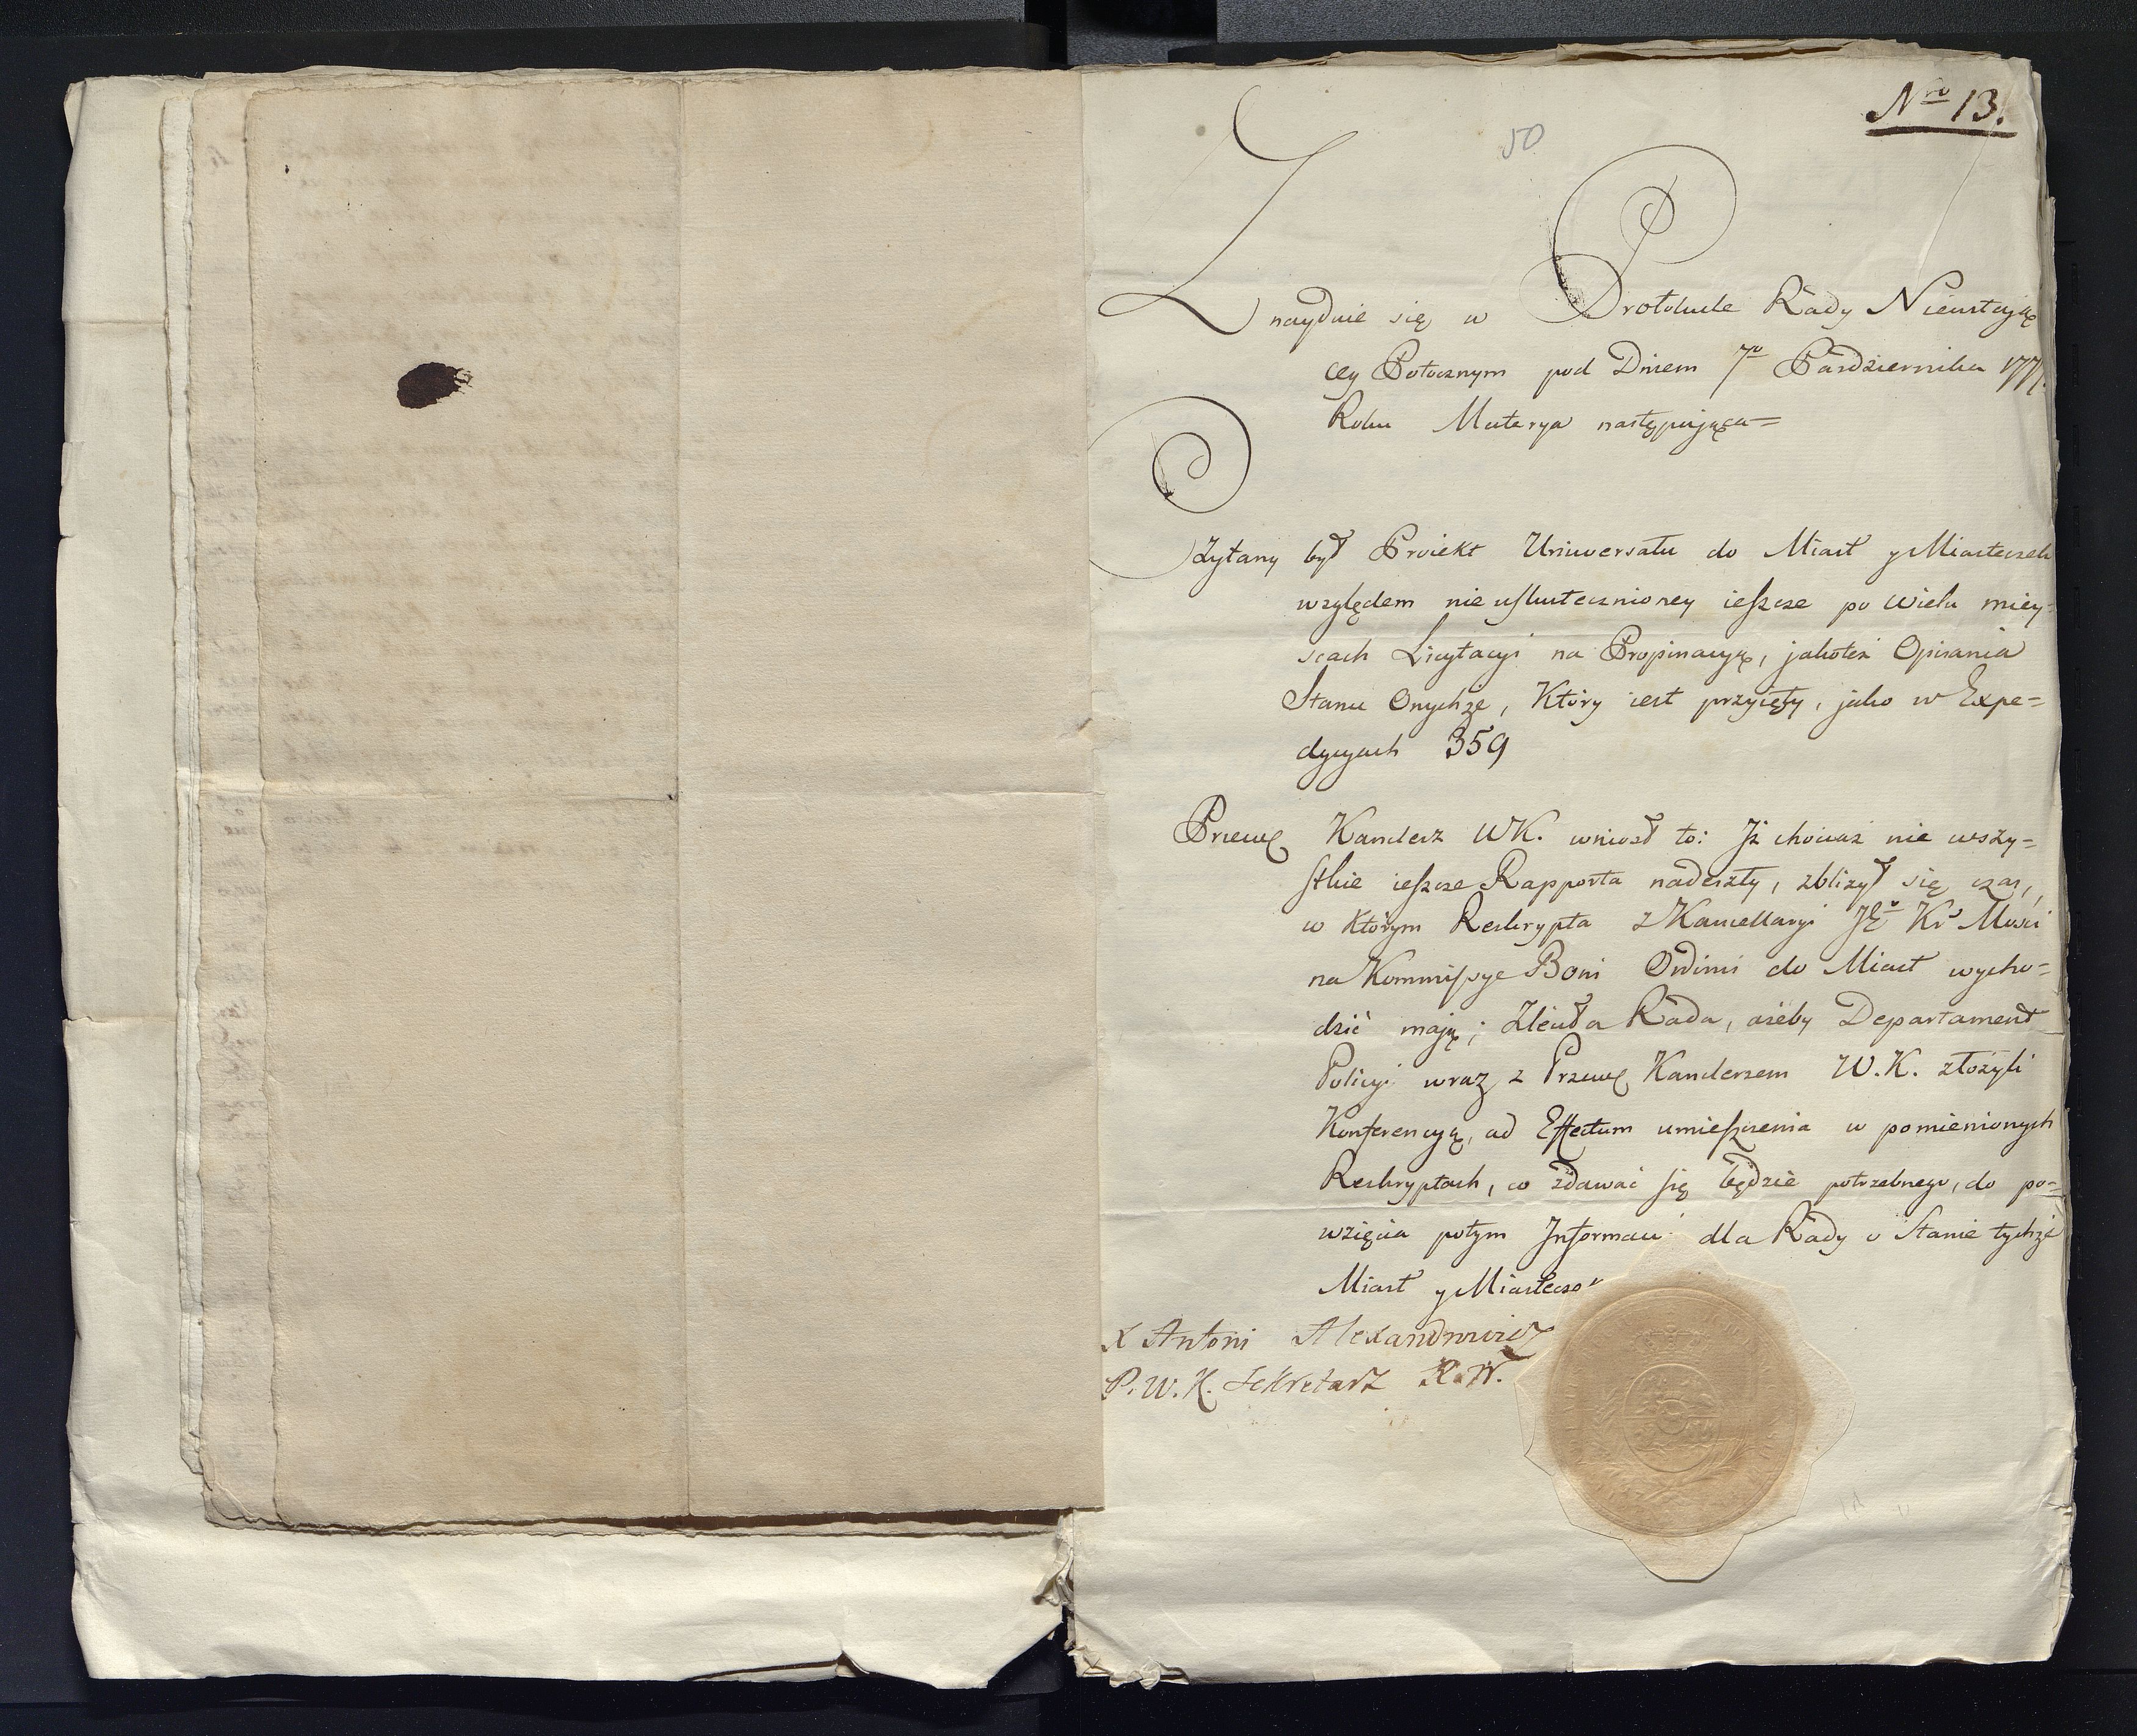 Nro 13.
50
Znayduie się w Protokule Rady Nieustaiąc
cey Potocznym pod Dniem 7o Pazdziernika 177
Roku Materya następuiąca=
Czytany był Proiekt Uniwersału do Miast y Miasteczek
względem nieuſkutecznioney ieſzcze po wielu miey=
scach Licytacyi na Propinacyą, jakoteż Opisania
Stanu Onychże, Który iest przyięty, jako w Expe=
dycyach 359
Przewo Kanclerz WK. wniosł to: Iż chociaż nie wszy=
ſtkie ieſzcze Rapporta nadeszły, zbliżył się czas,
w Którym Reskrypta z Kancellaryi JEo Kr Mości
na Kommiſsye Boni Ordinis do Miast wycho=
dzić maią; Zleciła Rada, ażeby Departament
Policyi wraz z Przewo Kanclerzem W.K. złożyli
Konferencyą, ad Effectum umieſzczenia w pomienionych
Reskryptach, co zdawać ſię będzie potrzebnego, do po=
wzięcia potym Informacyi dla Rady o Stanie tychże
Miast y Miasteczek
X Antoni Alexandrowicz
P. W. X. Sekretarz R. N.